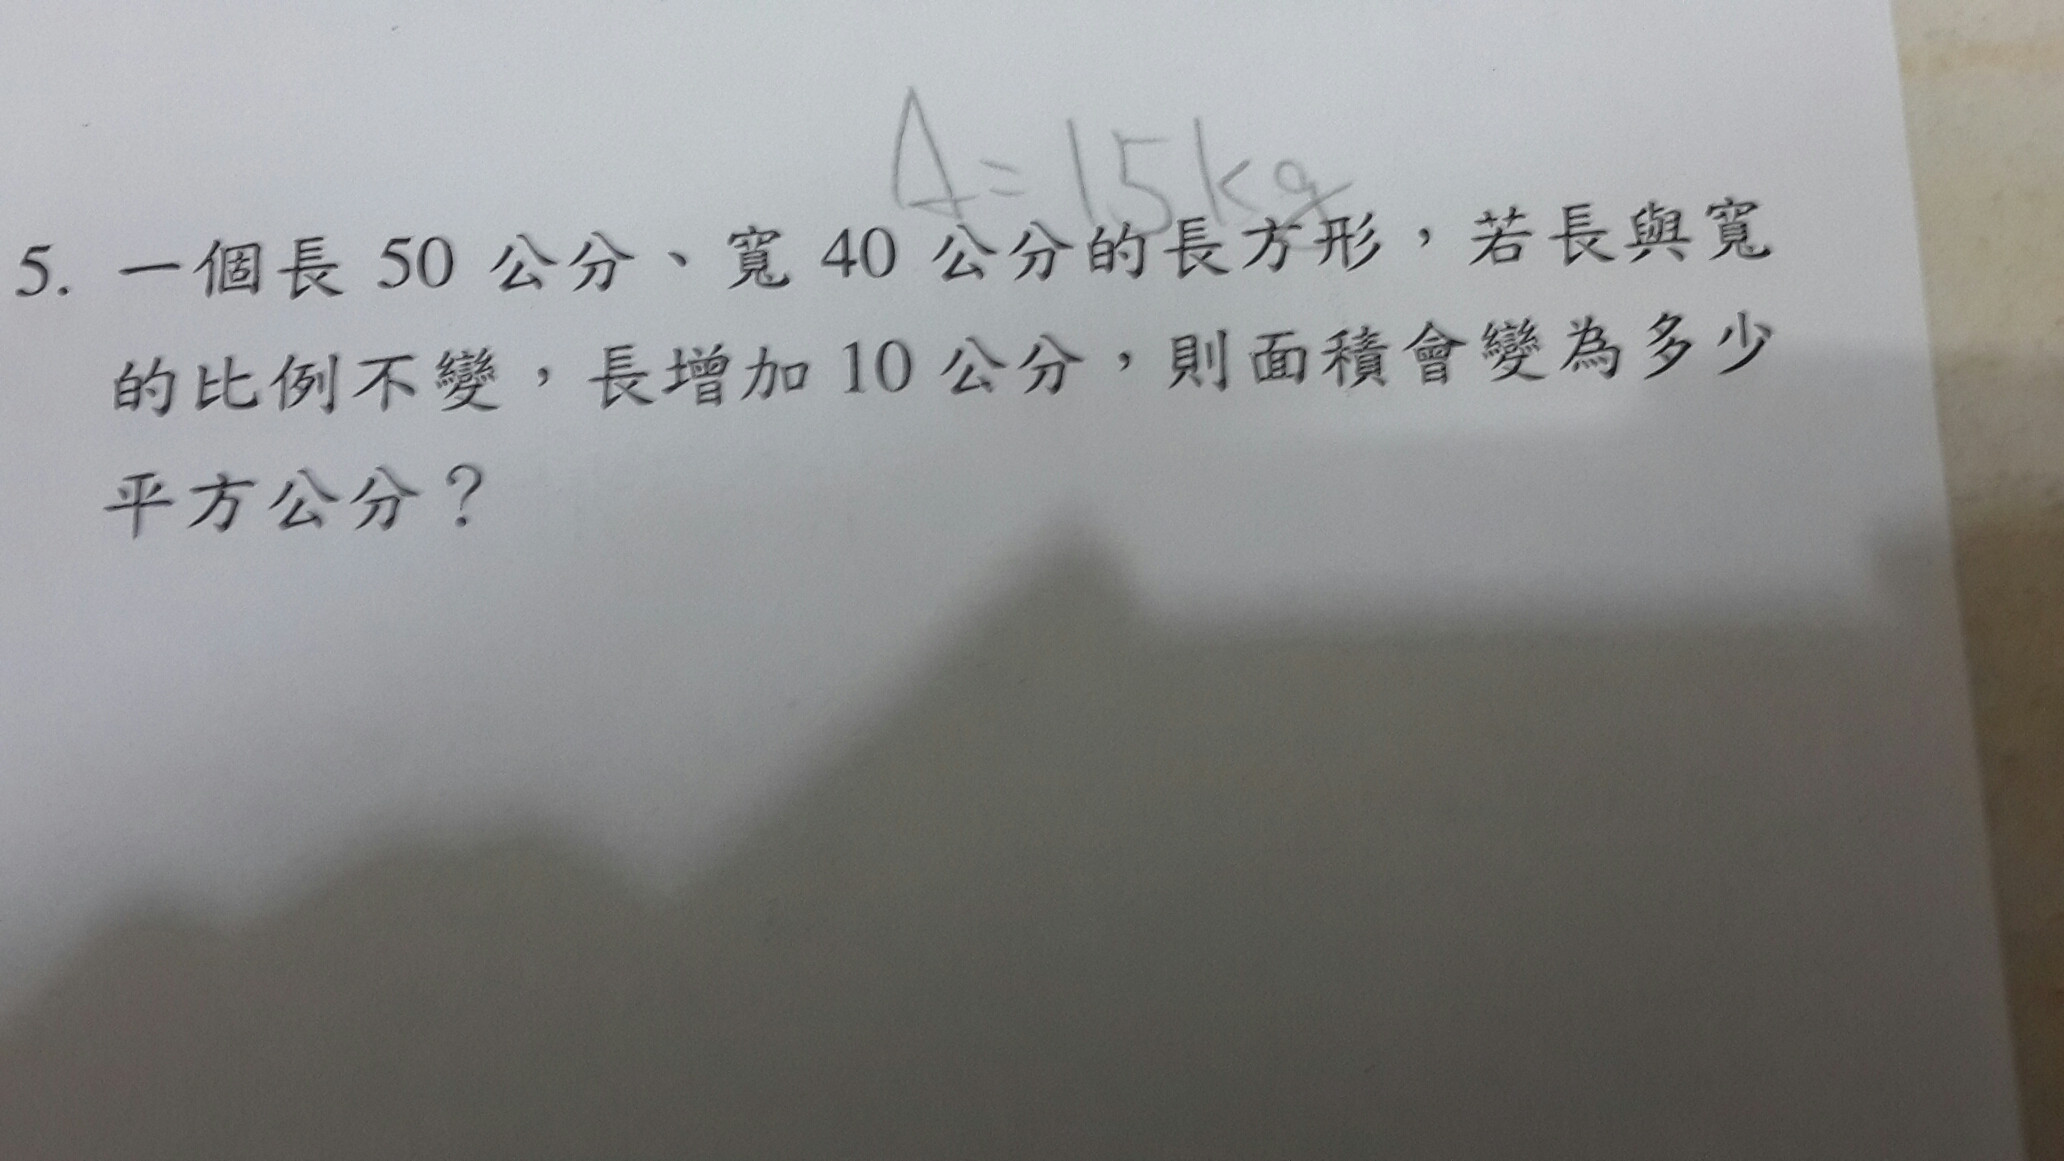 A=15kg
5. 一個長 50 公分、寬 40 公分的長方形，若長與寬
的比例不變，長增加 10 公分，則面積會變為多少
平方公分？